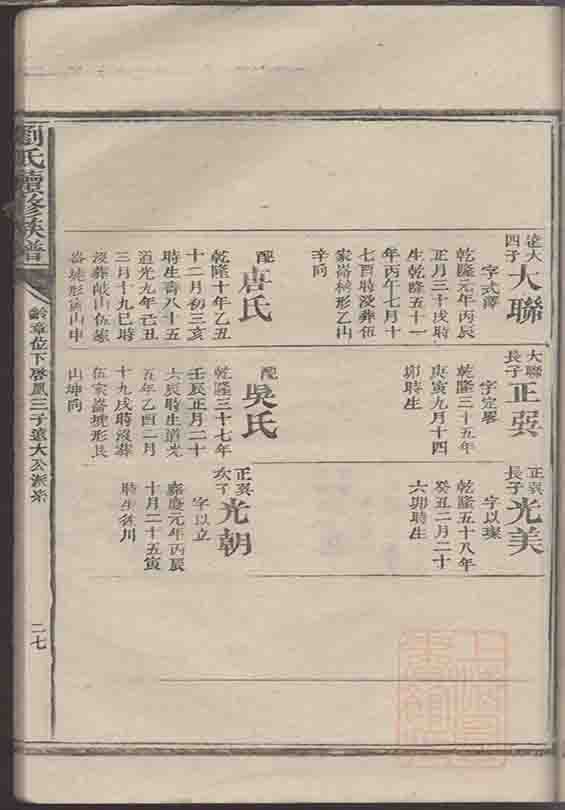 劉氏續修族譜
齡章位下啓鳳三子遠大公派系
二七
遠大
四子
大聯
字式譯
乾隆元年丙辰
正月三十戌時
生乾隆五十一
年丙午七月十
七酉時沒葬伍
家嵛 形乙山
辛向
配
唐氏
乾隆十年乙丑
十二月初三亥
時生壽八十五
道光九年己丑
三月十九巳時
沒葬 山伍家
嵛 形 山申
大聯
長子
正巽
字定
乾隆三十五年
庚寅九月十四
卯時生
配
吳氏
乾隆三十七年
壬辰正月二十
六辰時生道光
五年乙酉二月
十九戌時沒葬
伍家嵛 形艮
山坤向
正巽
長子
光美
字以璨
乾隆五十八年
癸丑二月二十
六卯時生
正巽
次子
光朝
字以立
嘉慶元年丙辰
十月二十五寅
時生 川
上海圖書館藏